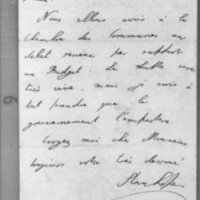 Nous allons avoir à la
Chambre des Communes un
débat sérieux par rapport
au Budget. La lutte sera
très vive, mais je crois à
tout prendre que le
gouvernement l'emportera
Croyez moi cher Monsieur
toujours votre très dévoué